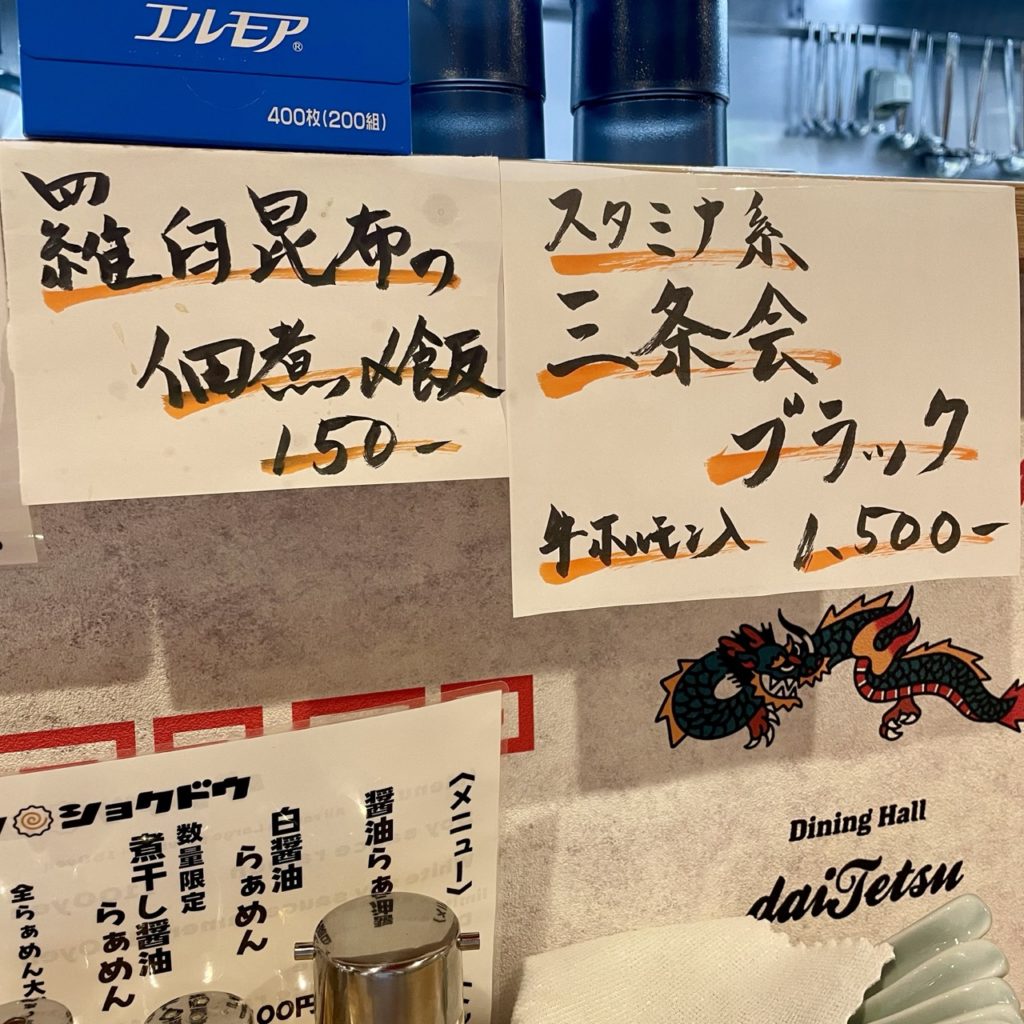 エルモア®
400枚(200組)
羅臼昆布の
佃煮〆飯
150-
スタミナ系
三条会
ブラック
牛ホルモン入 1,500-
ショクドウ
〈メニュー〉
醤油らぁ
白醤油
らぁめん
数量限定
煮干し醤油
らぁめん
全らぁめん大
00円
Dining Hall
daiTetsu